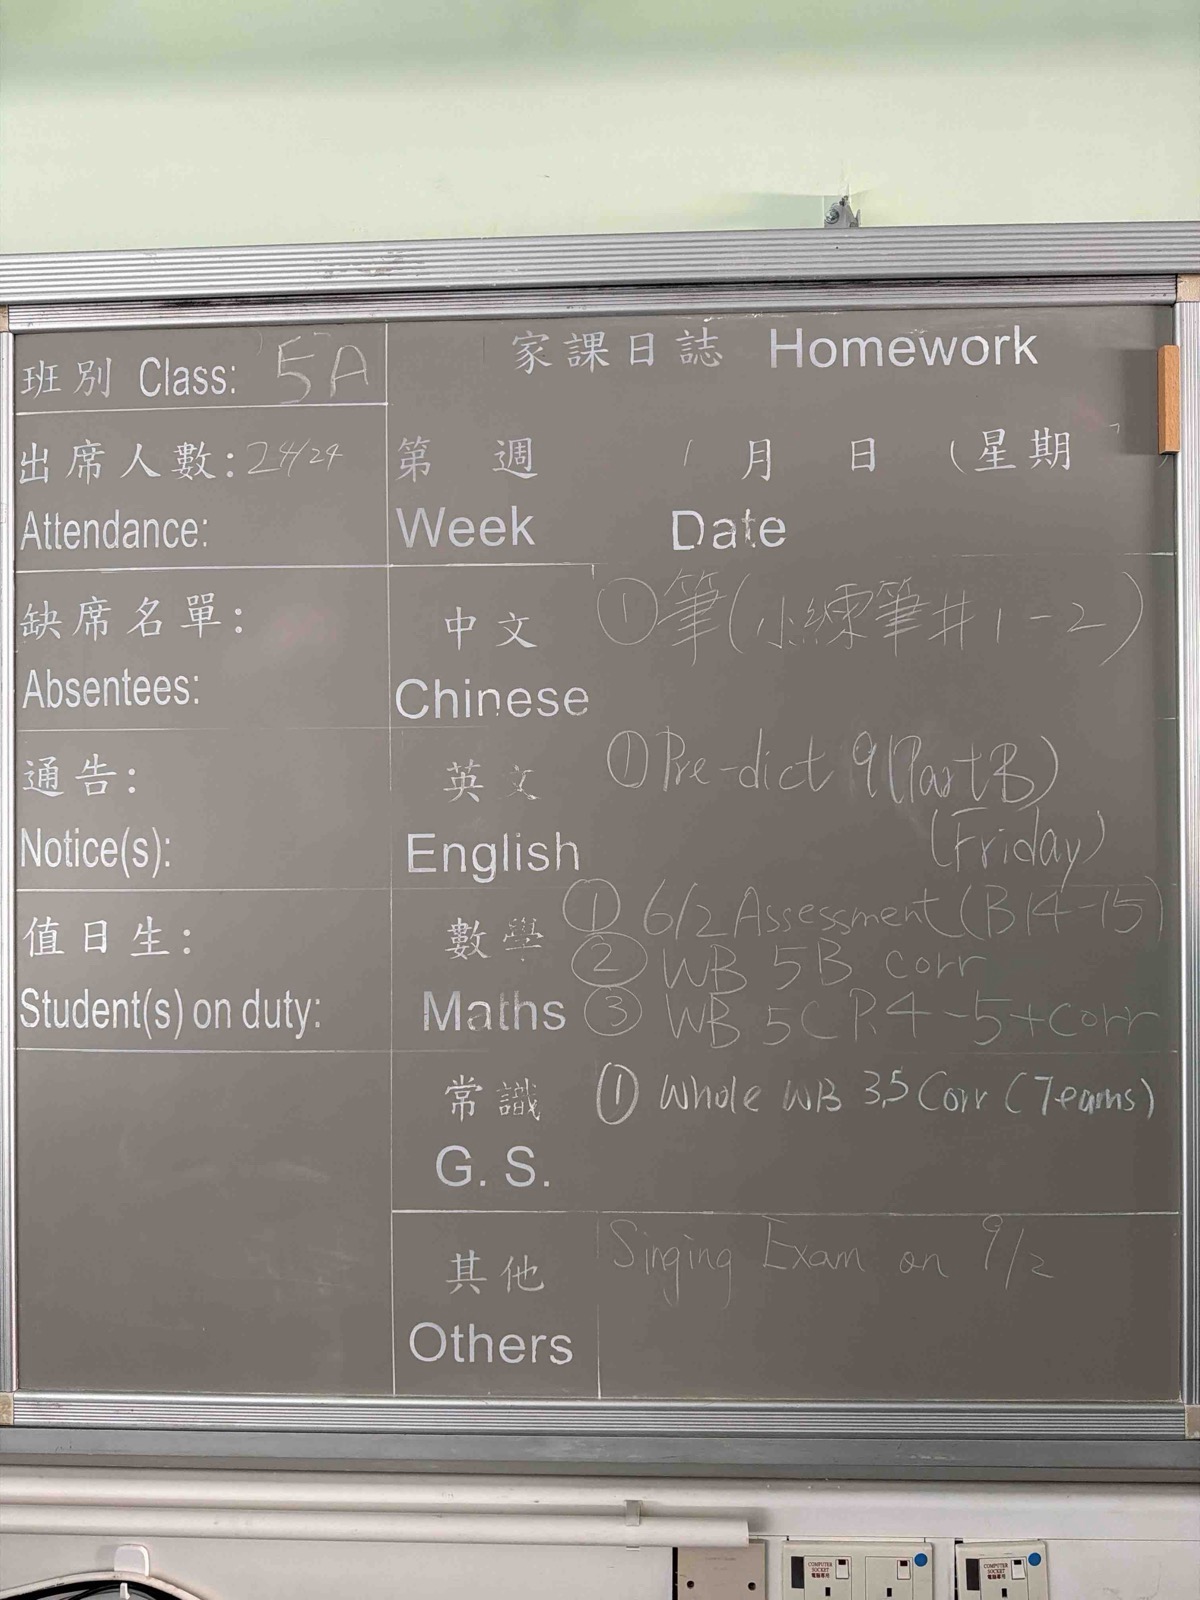 家課日誌 Homework
班別 Class: 5A
出席人數: 24/24
Attendance:
第 週 月 日 (星期
Week Date
缺席名單:
Absentees:
中文
Chinese
①筆(小練筆#1-2)
通告:
Notice(s):
英文
English
①Pre-dict 9(Part B)
(Friday)
值日生:
Student(s) on duty:
數學
Maths
① 6/2 Assessment (B14-15)
② WB 5B corr
③ WB 5C P.4-5+corr
常識
G. S.
① Whole WB 3,5 Corr (Teams)
其他
Others
Singing Exam on 9/2
COMPUTER
SOCKET
電腦專用
COMPUTER
SOCKET
電腦專用